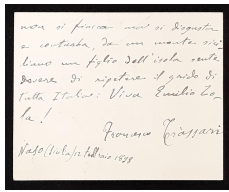 non si finisca non si disgusta
e conturba, da un monte sici-
liano un figlio dell'isola sente
dovere di ripetere il grido di
tutta Italia: Viva Emilio Zo-
la!
Francesco
Naso (Sicilia) 12 febbraio 1898